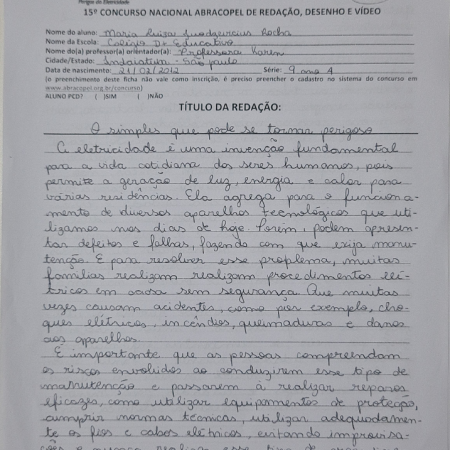 Perigos da Eletricidade
15º CONCURSO NACIONAL ABRACOPEL DE REDAÇÃO, DESENHO E VÍDEO
Nome do aluno: Maria Luiza Rocha
Nome da Escola: Colégio D+ Educativo
Nome do(a) professor(a) orientador(a): Professora Karen
Cidade/Estado: Indaiatuba - São paulo
Data de nascimento: 21/02/2012 Série: 9 ano A
(o preenchimento desta ficha não vale como inscrição, é preciso preencher o cadastro no sistema do concurso em
www.abracopel.org.br/concurso)
ALUNO PCD? ( )SIM ( )NÃO
TÍTULO DA REDAÇÃO:
O simples que pode se tornar perigoso
A eletricidade é uma invenção fundamental
para a vida cotidiana dos seres humanos, pois
permite a geração de luz, energia e calor para
várias residências. Ela agrega para o funciona-
mento de diversos aparelhos tecnológicos que uti-
lizamos nos dias de hoje. Porém, podem apresen-
tar defeitos e falhas, fazendo com que exija manu-
tenção. E para resolver esse problema, muitas
famílias realizam realizam procedimentos elé-
tricos em casa sem segurança. Que muitas
vezes causam acidentes, como por exemplo, cho-
ques elétricos, incêndios, queimaduras e danos
aos aparelhos.
É importante que as pessoas compreendam
os riscos envolvidos ao conduzirem esse tipo de
manutenção e passarem à realizar reparos
eficazes, como utilizar equipamentos de proteção,
cumprir normas técnicas, utilizar adequadamen-
te os fios e cabos elétricos, evitando improvisa-
ções e nunca realizar esse tipo de